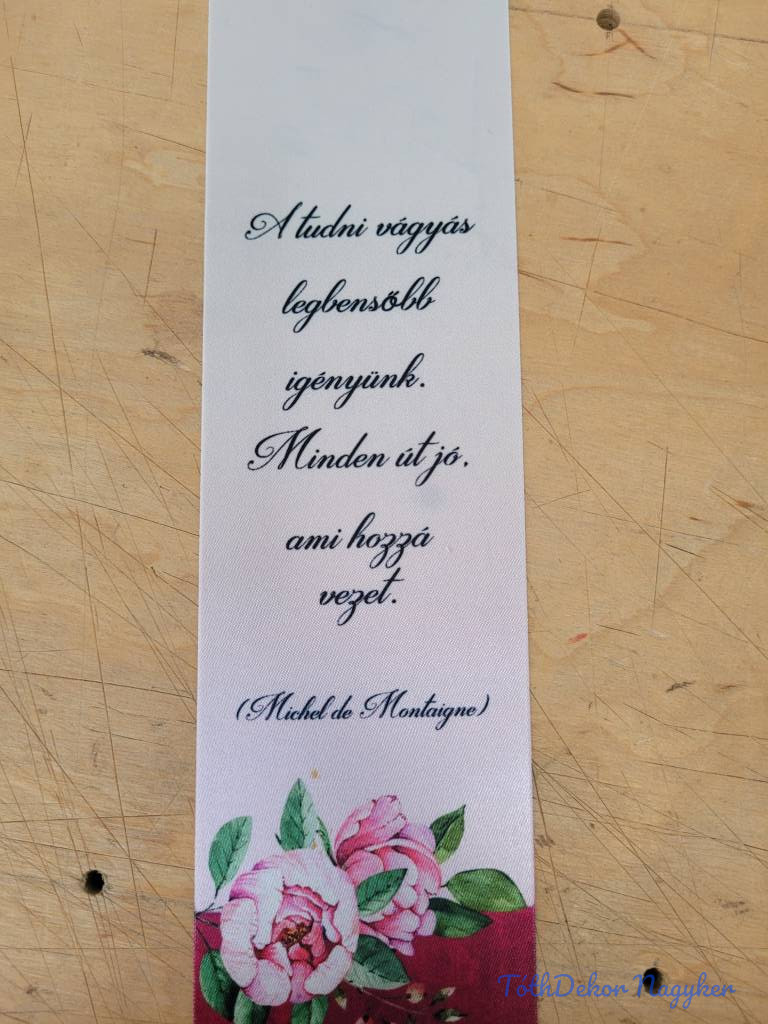 A tudni vágyás
legbensőbb
igényünk.
Minden út jó,
ami hozzá
vezet.
(Michel de Montaigne)
TóthDekor Nagyker